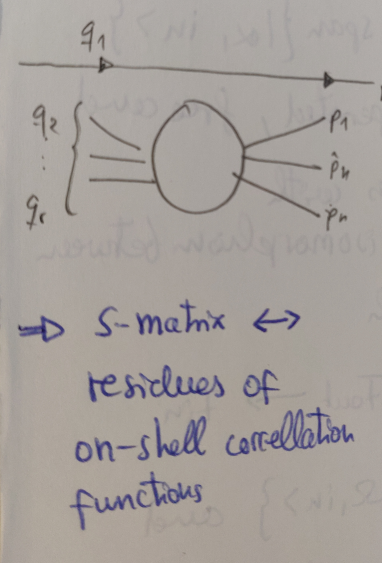 q1
q2
p1
⋮
p̂k
qr
pn
⇒ S-matrix ↔
residues of
on-shell correllation
functions